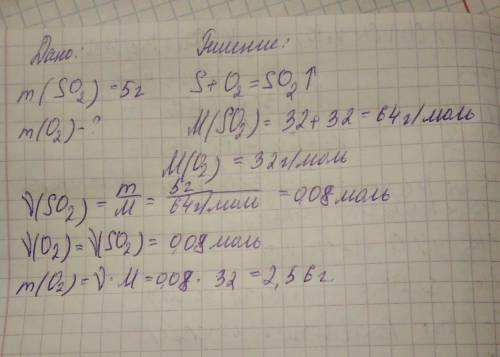 Дано: Решение:
m(SO₂) = 5г S + O₂ = SO₂↑
m(O₂) - ? M(SO₂) = 32 + 32 = 64 г/моль
M(O₂) = 32 г/моль
ν(SO₂) = m/M = 5г/64 г/моль = 0,08 моль
ν(O₂) = ν(SO₂) = 0,08 моль
m(O₂) = ν · M = 0,08 · 32 = 2,56 г.